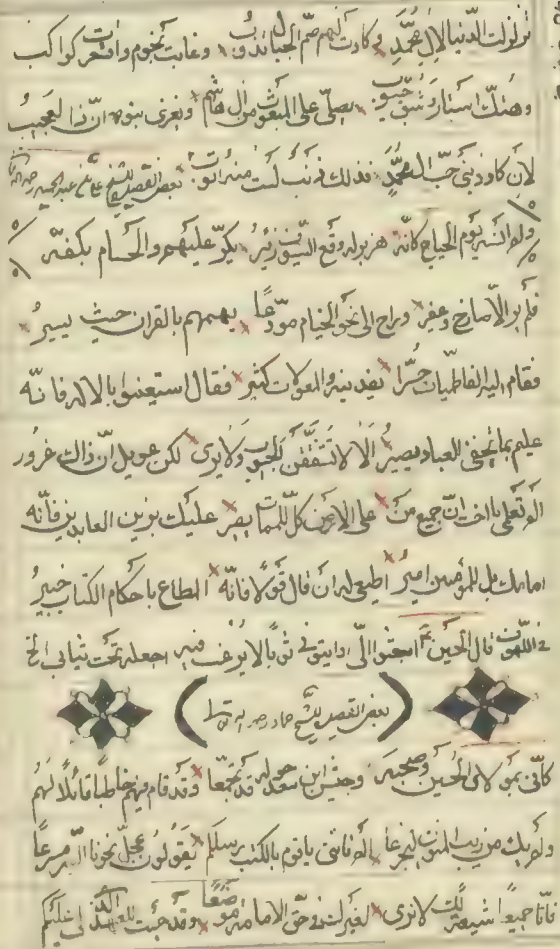 تزلزلت الدّنيا لآل محمّد وكادت لهم صمّ الجبال تذوب وغابت نجوم واقشعرّت كواكب
وهتك استار وشقّ جيوب يصلّى على المبعوث من آل هاشم ويغزى بنوه انّ ذا لعجيب
لان كان ذنبى حبّ آل محمّد فذلك ذنب لست منه اتوب بعض القصيدة للشيخ عبد الحميد رحمه الله
ولم انسه يوم الهياج كانّه هزبر له وقع السيوف زئير يكرّ عليهم والحسام بكفّه
فلم ير الّا صارخ وعفير وراح الى نحو الخيام مودّعا يهمهم بالقران حيث يسير
فقام اليه الفاطميّات حسّرا يفدّينه والمعولات كثير فقال استعينوا بالاله فانّه
عليم بما يخفى العباد بصير الا لا تشققن الجيوب ولا يرى لكن عويل انّ ذاك غرور
الم تعلمى يا اخت انّ جميع من على الارض كلّ للممات يصير عليك بزين العابدين فانّه
امامك بل للمؤمنين امير اطيعى له ان قال قولا فانّه المطاع باحكام الكتاب خبير
فى اللهوف قال الحسين ع ايتونى ثوبا لا يرغب فيه اجعله تحت ثيابى الخ
بعض القصيدة للشيخ حماد رحمه الله
كانّى بمولاى الحسين وصحبه وجيش ابن سعد حوله قد تجمّعا وقد قام فيهم خاطبا قائلا لهم
ولم يك من ريب المنون ليجزعا الم تاتنى يا قوم بالكتب رسلكم يقولون عجّل نحونا السير مسرعا
فانّا جميعا شيعة لك لا نرى لغيرك فى حقّ الامامة موضعا وقد جئت للعهد الذى لى عليكم